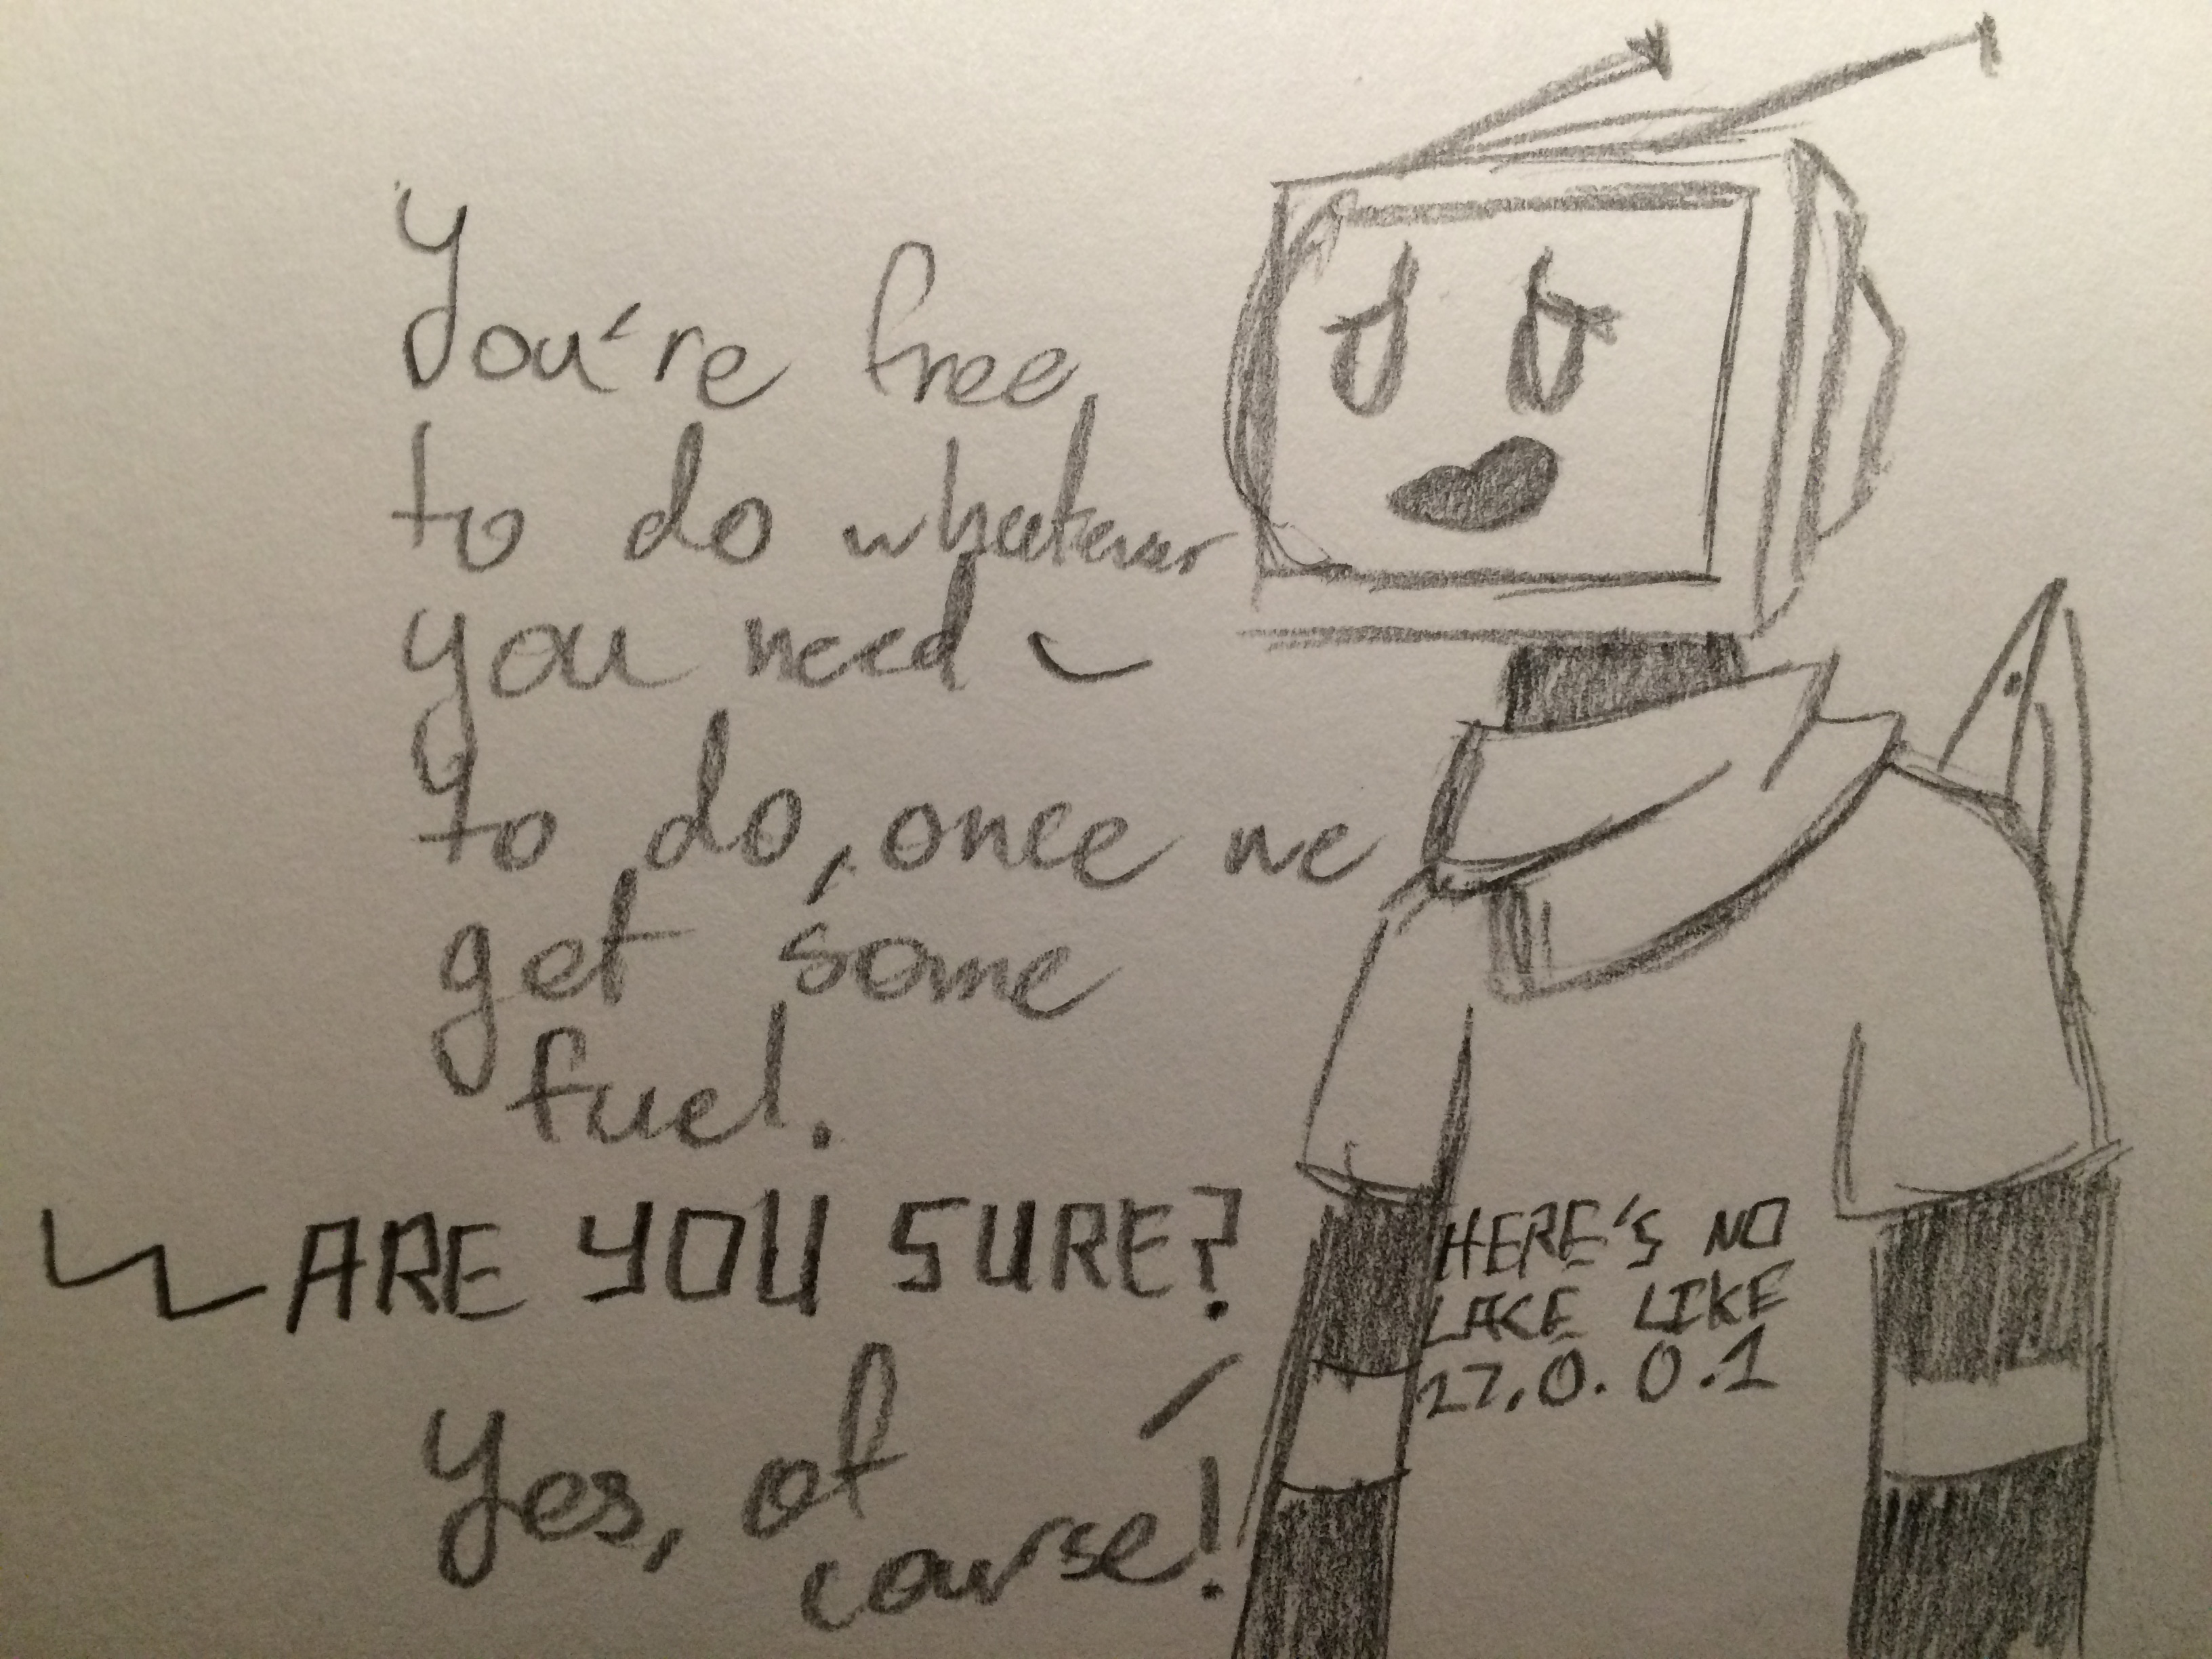 You're free
to do whatever
you need
to do, once we
get some
fuel.
ARE YOU SURE?
HERE'S NO
LACE LIKE
27.0.0.1
Yes, of
course!